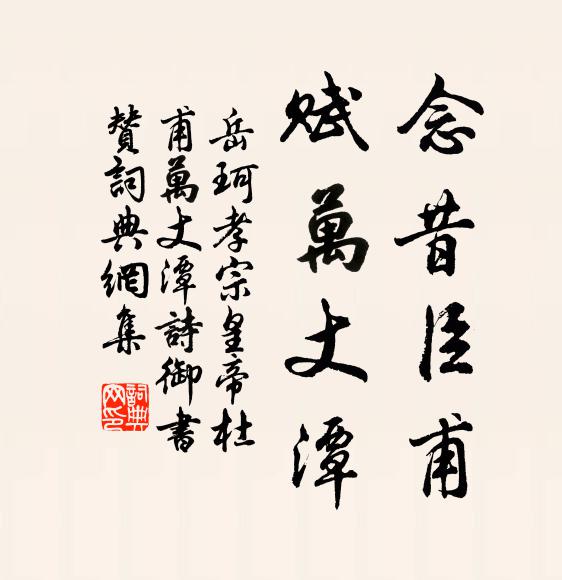 念昔臣甫
賦萬丈潭
岳珂孝宗皇帝杜
甫萬丈潭詩御書
贊詞典網集
詞典网印